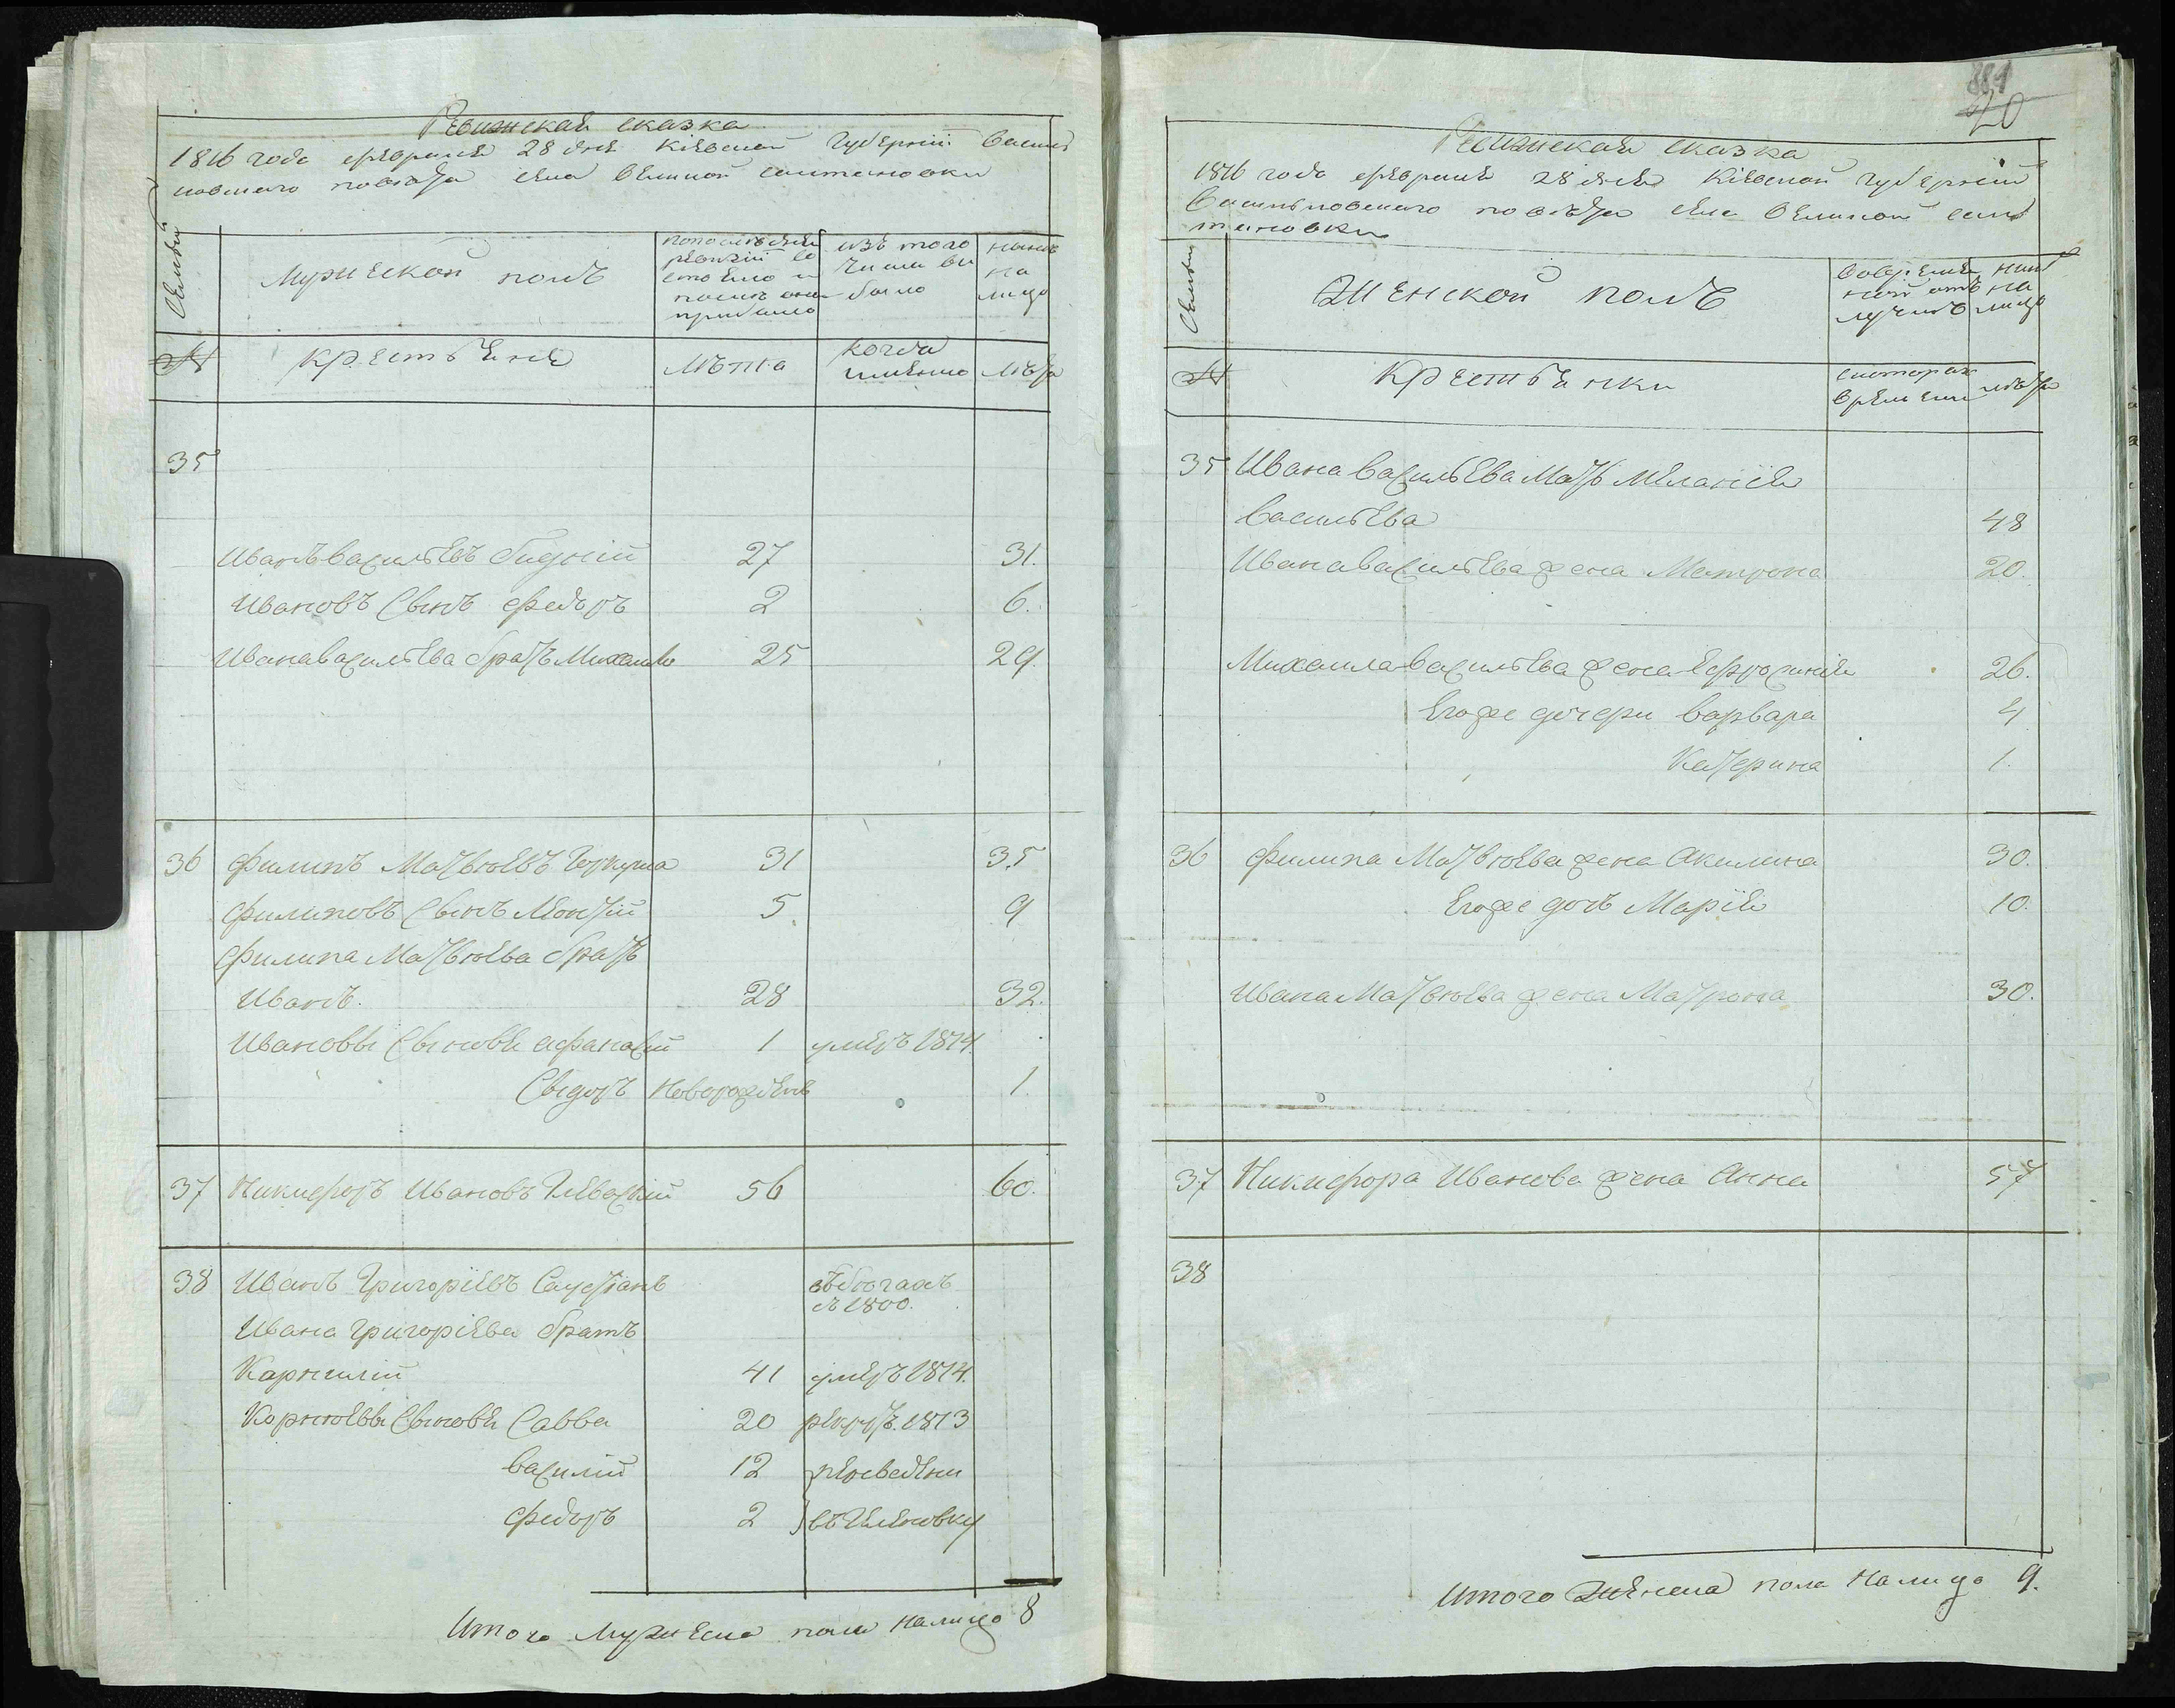 Ревижская сказка
1816 года февраля 28 дня Кіевской Губерніи Василь
ковскаго повѣта села Великой Салтановки
Семьи
Мужеской полъ
попоследней
ревизіи со
стояло и
после оной
прибыло
изъ того
числа вы
было
нынѣ
на
лицо
№
крестьяне
лѣта
когда
имянно
лѣта
35
Иванъ Васильевъ Бидній 27 31.
Ивановъ Сынъ Федоръ 2 6.
Ивана Васильева братъ Михайло 25 29.
36 Филипъ Матвіевъ 31 35
Филиповъ Сынъ Леонтій 5. 9
Филипа Матвіева братъ
Иванъ. 28 32.
Ивановы Сыновья Афанасій 1 умеръ 1814.
Сыдоръ Новорожденъ 1.
37 Никифоръ Ивановъ Глевацкій 56 60.
38 Иванъ Григоріевъ 1800.
Ивана Григоріева братъ
Карнилій 41 умеръ 1814.
Корніевы Сыновья Савва 20 рекрут. 1813
Василій 12 переведени
Федоръ 2 въ
Итого Мужеска пола налицо 8
881
20
Ревижская сказка
1816 года февраля 28 дня Кіевской Губерніи
Васильковскаго повѣта села Великой Сал
тановки
Семьи
Женской полъ
вовремен
ной отъ
лучкѣ
нынѣ
на
лицо
№
Крестьянки
скоторах
времени
лѣта
35 Ивана Васильева Мать Меланія
Васильева 48
Ивана Васильева жена Матрона 20.
Михаила Васильева жена Ефросинія 26.
Егоже дочери Варвара 4
Катерина 1.
36 Филипа Матвіева жена Акилина 30.
Егоже дочь Марія 10.
Ивана Матвіева жена Матрона 30.
37 Никифора Иванова жена Анна 57
38
Итого Женска пола Налицо 9.